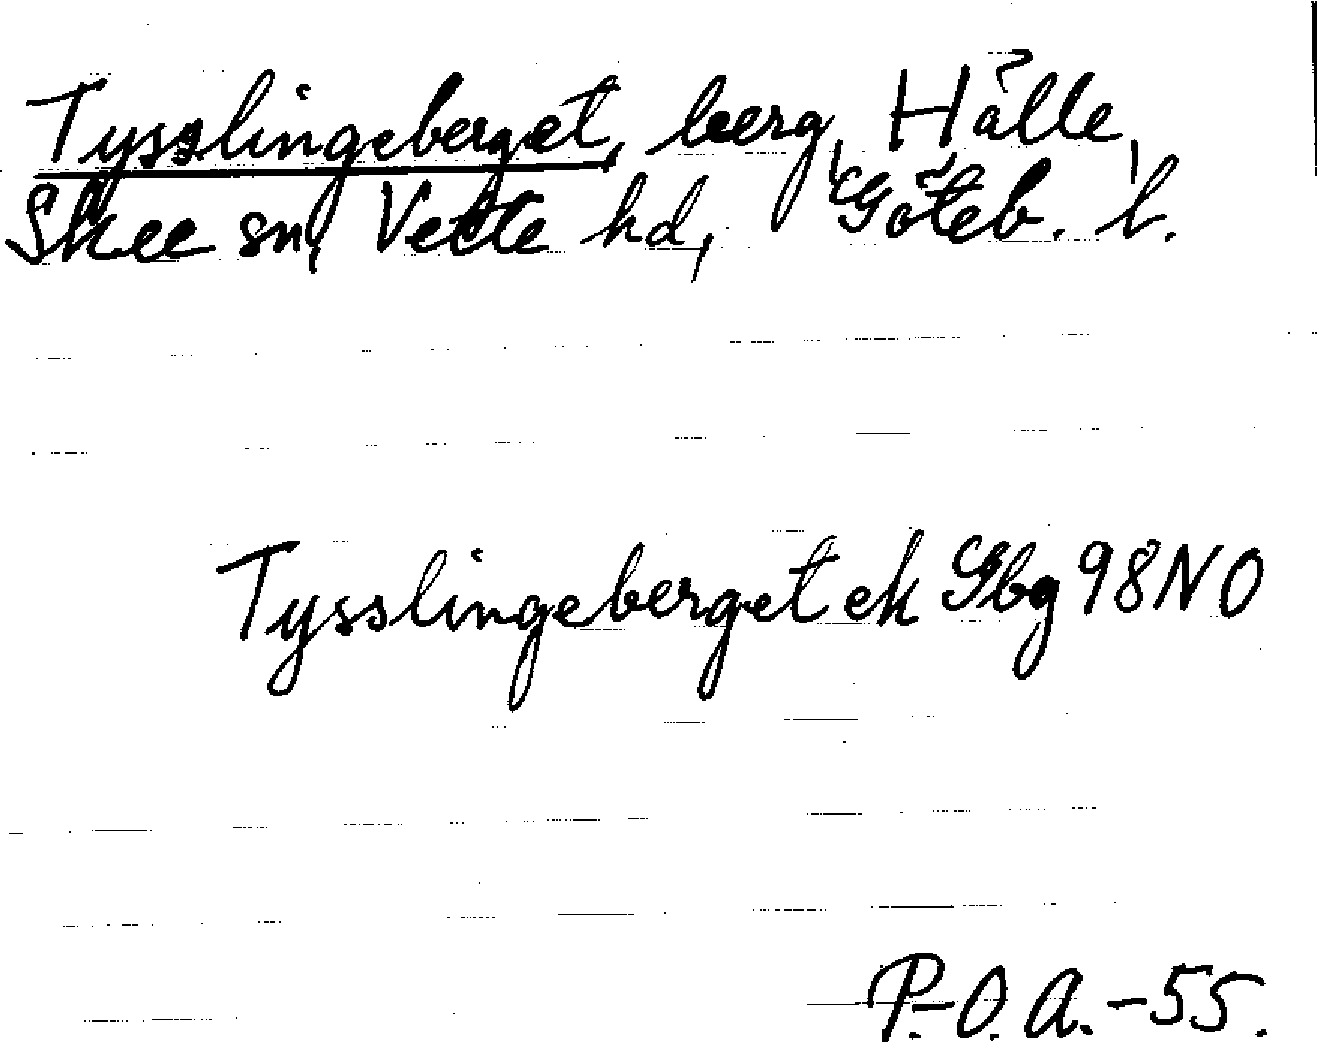 Tysslingeberget, berg, Hälle,
Skee sn, Vette hd, Göteb. l.
Tysslingeberget ek Gbg 98 NO
P.-O. A. -55.